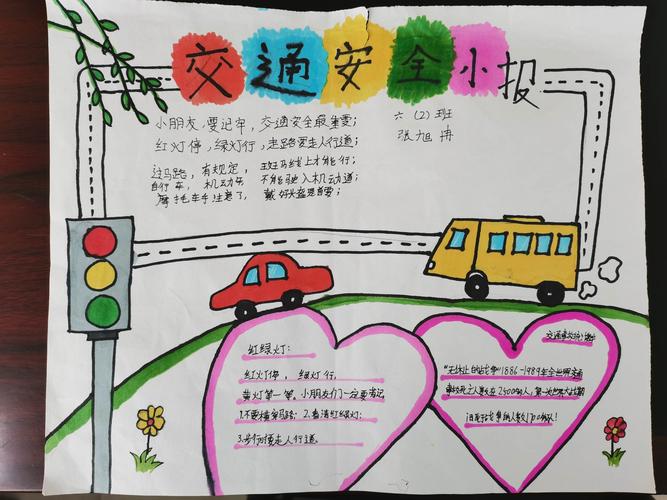 交通安全小报
六(2)班
张旭冉
小朋友,要记牢,交通安全最重要;
红灯停,绿灯行,走路要走人行道;
过马路,有规定,斑马线上才能行;
自行车,机动车,不能驶入机动道;
摩托车手注意了,戴好头盔是首要;
红绿灯:
红灯停,绿灯行,
黄灯等一等,小朋友们一定要牢记
1.不要横穿马路;2.看清红绿灯;
3.步行要走人行道。
交通事故
"无休止的战争"1886-1989年全世界交通
事故死亡人数在2500人,第一次世界大战